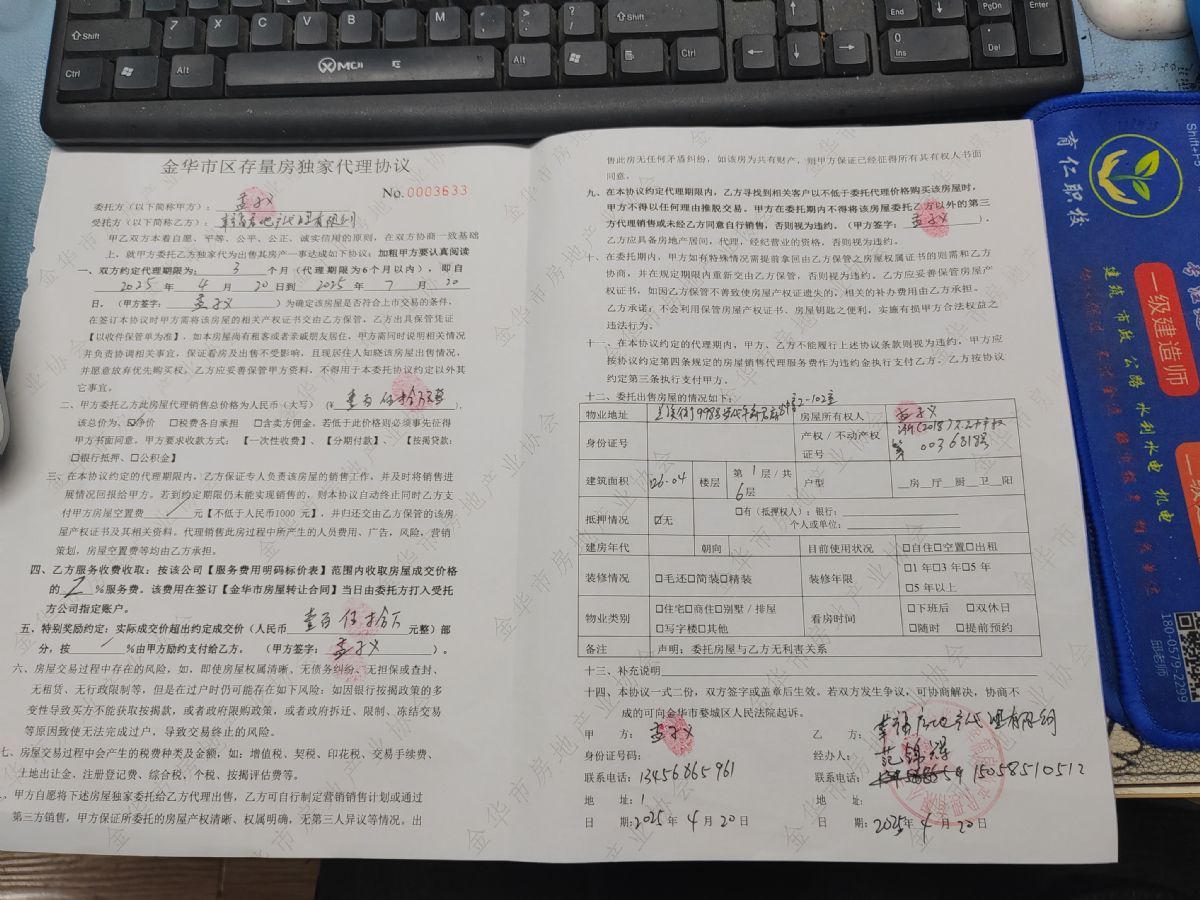 金华市区存量房独家代理协议
No.0003633
委托方（以下简称甲方）：孟
受托方（以下简称乙方）：
甲乙双方本着自愿、平等、公平、公正、诚实信用的原则，在双方协商一致基础
上，就甲方委托乙方为出售其房产一事达成如下协议：加粗甲方要认真阅读
一、双方约定代理期限为： 3 个月（代理期限为6个月以内），即自
2025 年 4 月 20 日到 2025 年 7 月 20
日。（甲方签字： 孟 ）为确定该房屋是否符合上市交易的条件，
在签订本协议时甲方需将该房屋的相关产权证书交由乙方保管，乙方出具保管凭证
【以收件保管单为准】，如本房屋尚有租客或者亲戚朋友居住，甲方需同时说明相关情况
并负责协调相关事宜，保证看房及出售不受影响，且现居住人知晓该房屋出售情况，
并愿意放弃优先购买权。乙方应妥善保管甲方资料，不得用于本委托协议约定以外其
它事宜。
二、甲方委托乙方此房屋代理销售总价格为人民币（大写）（¥ 壹百伍拾万 ），
该总价为、☑净价 □税费各自承担 □含卖方佣金。若低于此价格则必须事先征得
甲方书面同意。甲方要求收款方式：【一次性收费】、【分期付款】、【按揭贷款：
□银行抵押、□公积金】
三、在本协议约定的代理期限内，乙方保证专人负责该房屋的销售工作，并及时将销售进
展情况回报给甲方。若到约定期限仍未能实现销售的，则本协议自动终止同时乙方支
付甲方房屋空置费 / 元【不低于人民币1000 元】，并归还交由乙方保管的该房
屋产权证书及其相关资料。代理销售此房过程中所产生的人员费用、广告，风险，营销
策划，房屋空置费等均由乙方承担。
四、乙方服务收费收取：按该公司【服务费用明码标价表】范围内收取房屋成交价格
的 2 %服务费。该费用在签订【金华市房屋转让合同】当日由委托方打入受托
方公司指定账户。
五、特别奖励约定：实际成交价超出约定成交价（人民币 壹百伍拾万 元整）部
分，按 / %由甲方励约支付给乙方。 （甲方签字： 孟 ）。
六、房屋交易过程中存在的风险，如，即使房屋权属清晰、无债务纠纷、无担保或查封、
无租赁、无行政限制等，但是在过户时仍可能存在如下风险：如因银行按揭政策的多
变性导致买方不能获取按揭款，或者政府限购政策，或者政府拆迁、限制、冻结交易
等原因致使无法完成过户，导致交易终止的风险。
七、房屋交易过程中会产生的税费种类及金额，如：增值税、契税、印花税、交易手续费、
土地出让金、注册登记费、综合税、个税、按揭评估费等。
甲方自愿将下述房屋独家委托给乙方代理出售，乙方可自行制定营销销售计划或通过
第三方销售，甲方保证所委托的房屋产权清晰、权属明确，无第三人异议等情况。出
售此房无任何矛盾纠纷，如该房为共有财产，则甲方保证已经征得所有其有权人书面
同意。
九、在本协议约定代理期限内，乙方寻找到相关客户以不低于委托代理价格购买该房屋时，
甲方不得以任何理由推脱交易。甲方在委托期内不得将该房屋委托乙方以外的第三
方代理销售或未经乙方同意自行销售，否则视为违约。（甲方签字： 孟 ）．
乙方应具备房地产居间，代理、经纪营业的资格，否则视为违约。
十、在委托期内，甲方如有特殊情况需提前拿回由乙方保管之房屋权属证书的则需和乙方
协商，并在规定期限内重新交由乙方保管，否则视为违约。乙方应妥善保管房屋产
权证书，如因乙方保管不善致使房屋产权证遗失的，相关的补办费用由乙方承担。
乙方承诺：不会利用保管房屋产权证书、房屋钥匙之便利，实施有损甲方合法权益之
违法行为。
十一、在本协议约定的代理期内，甲方、乙方不能履行上述协议条款则视为违约，甲方应
按协议约定第四条规定的房屋销售代理服务费作为违约金执行支付乙方。乙方按协议
约定第三条执行支付甲方。
十二、委托出售房屋的情况如下：
物业地址 2-102室 房屋所有权人 孟
身份证号 产权 / 不动产权证号 浙(2018) 第0036818号
建筑面积 126.04 楼层 第 1 层 / 共 6 层 户型 __房__厅__厨__卫__阳
抵押情况 ☑无 □有（抵押权人）：银行：
个人或单位：
建房年代 朝向 目前使用状况 □自住□空置□出租
装修情况 □毛还□简装□精装 装修年限 □1 年□3 年□5 年
□5 年以上
物业类别 □住宅□商住□别墅 / 排屋 看房时间 □下班后 □双休日
□写字楼□其他 □随时 □提前预约
备注 声明：委托房屋与乙方无利害关系
十三、补充说明
十四、本协议一式二份，双方签字或盖章后生效。若双方发生争议，可协商解决，协商不
成的可向金华市婺城区人民法院起诉。
甲 方： 孟 乙 方： 幸福房地产代理有限公司
身份证号码： 经办人： 范锦
联系电话：13456865961 联系电话： 15058510512
地 址： 地 址：
日 期：2025年 4 月 20日 日 期：2025年 4 月 20日
育仁职校
一级建造师
建筑 市政 公路 水利水电 机电
180-0579-2299